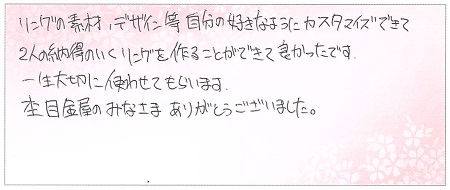 リングの素材、デザイン等自分の好きなようにカスタマイズできて
2人の納得のいくリングを作ることができて良かったです.
一生大切に使わせてもらいます.
杢目金屋のみなさまありがとうございました。